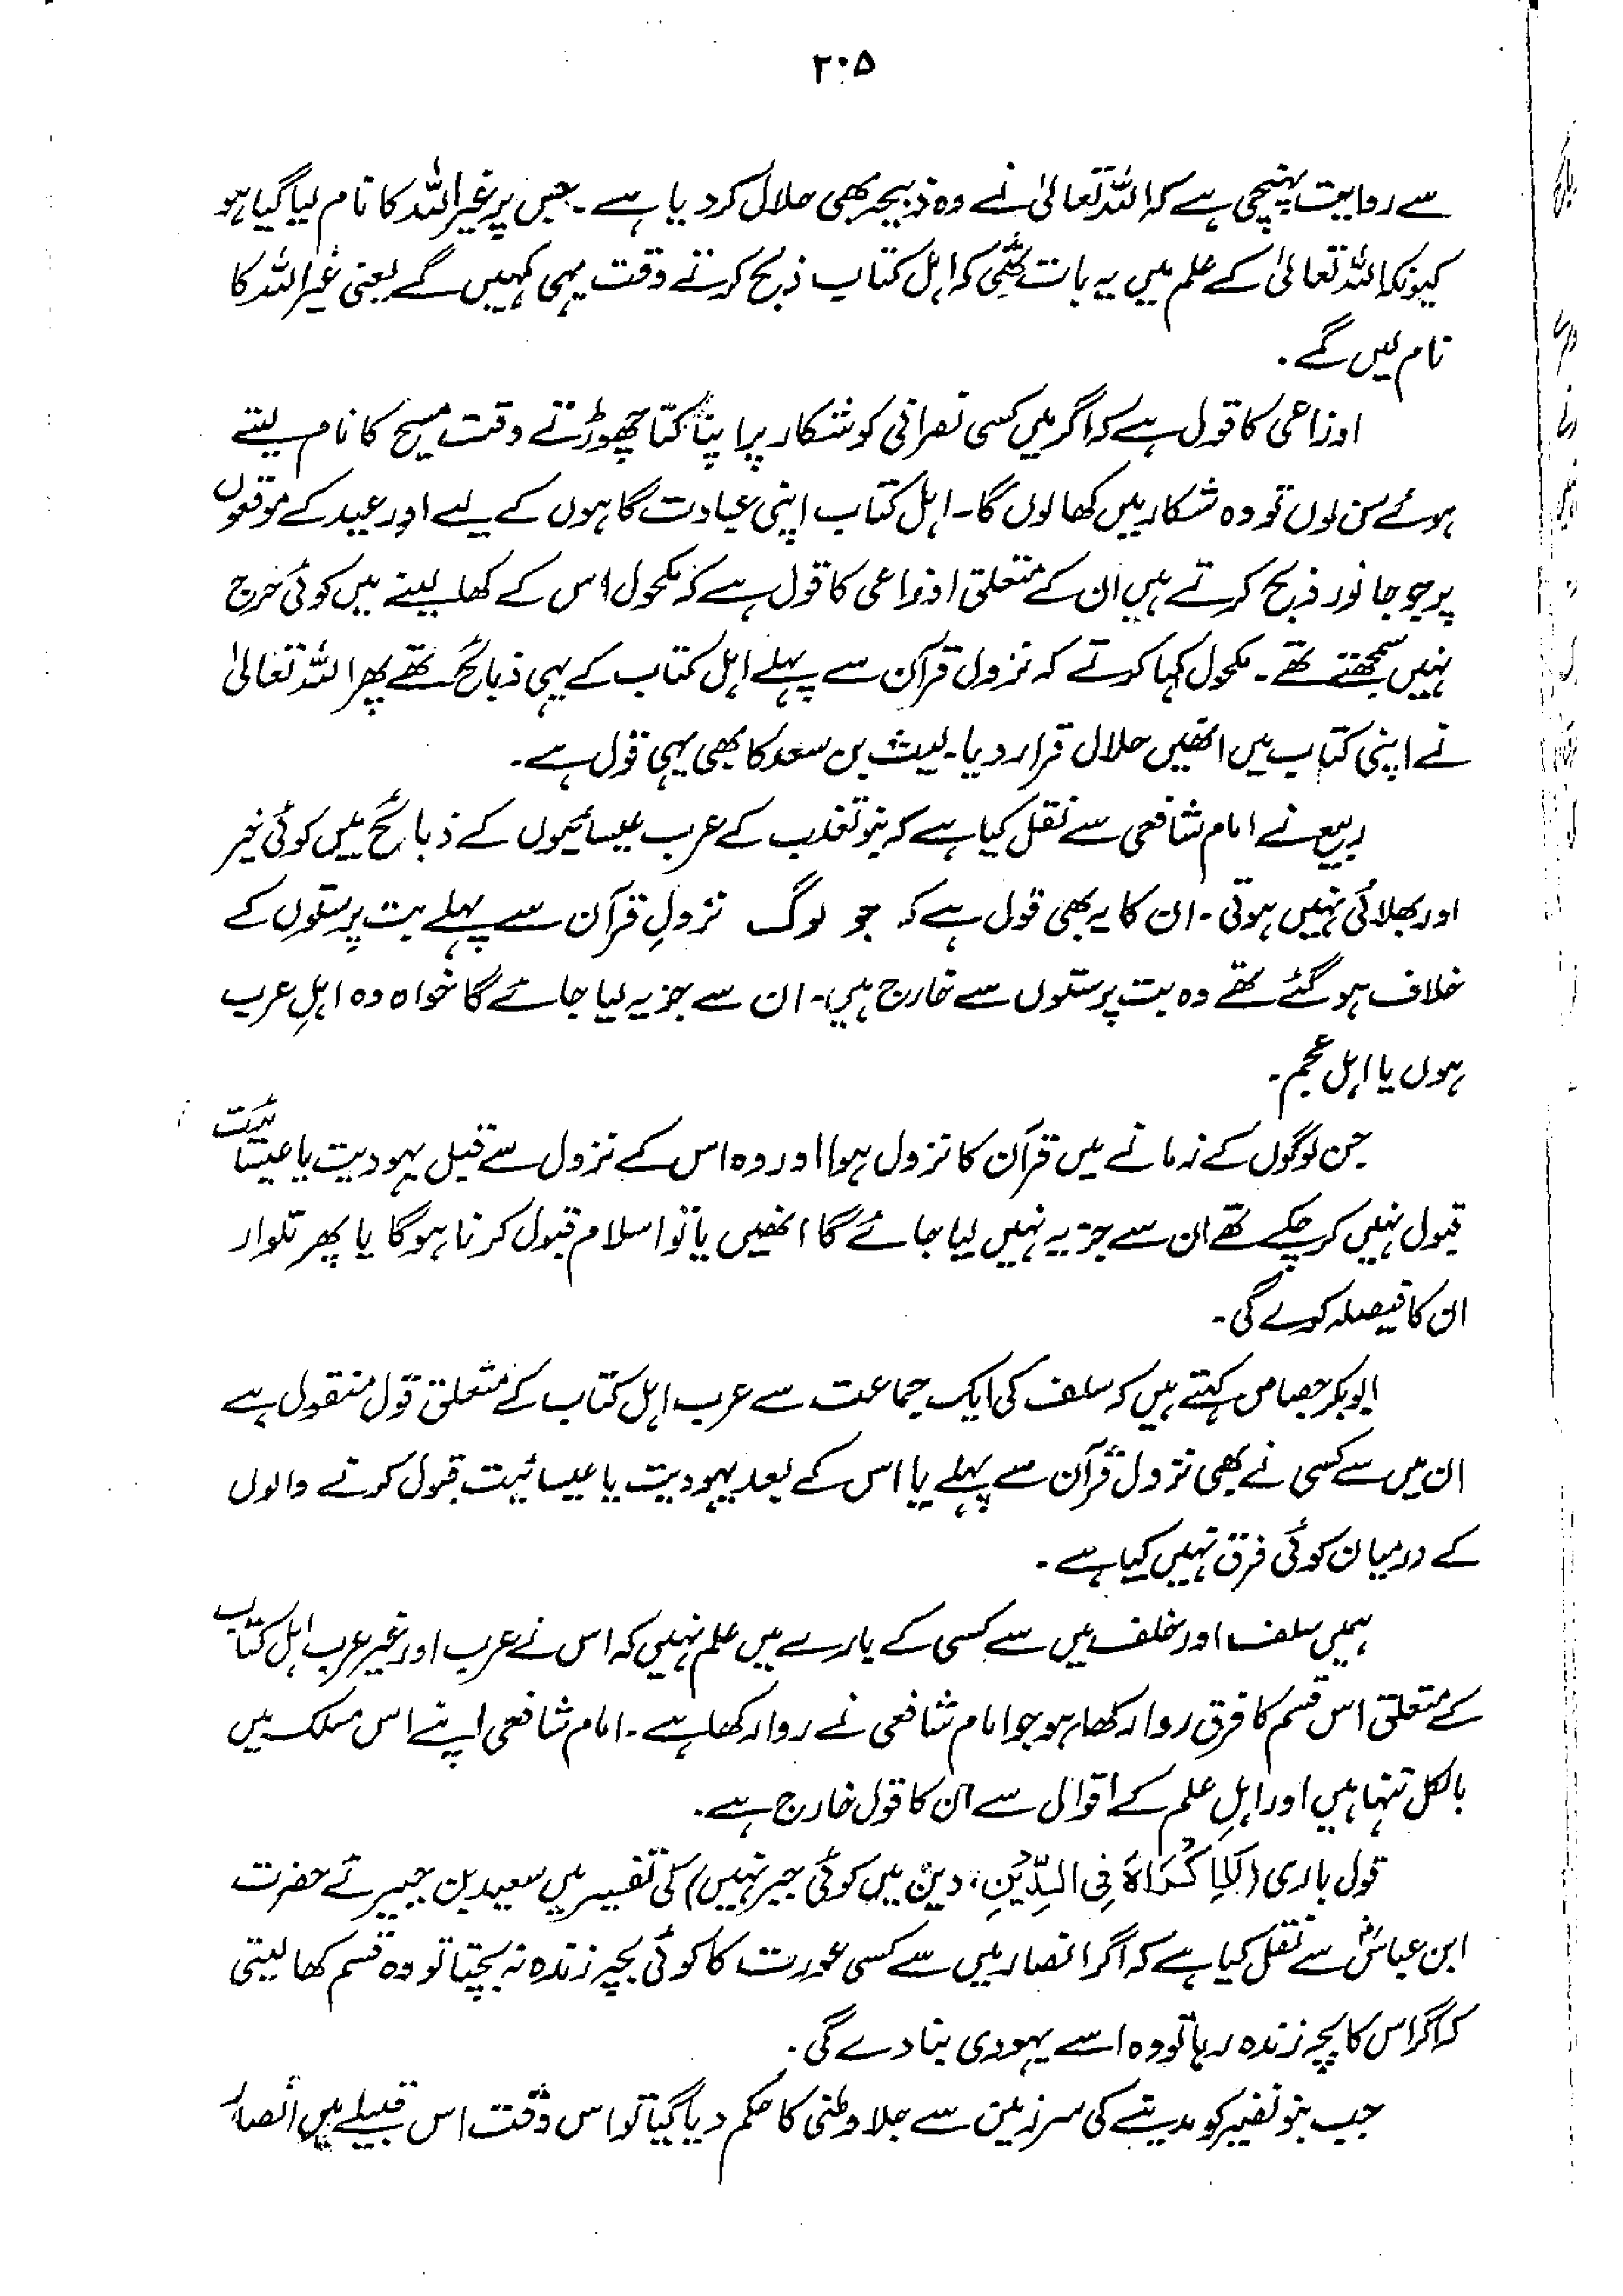 ۲۰۵
سے روایت پہنچی ہے کہ اللہ تعالیٰ نے وہ ذبیحہ بھی حلال کر دیا ہے۔ جس پر غیر اللہ کا نام لیا گیا ہو
کیونکہ اللہ تعالیٰ کے علم میں یہ بات تھی کہ اہل کتاب ذبح کرتے وقت یہی کہیں گے یعنی غیر اللہ کا
نام لیں گے۔
اوزاعی کا قول ہے کہ اگر میں کسی نصرانی کو شکار پر اپنا کتا چھوڑتے وقت مسیح کا نام لیتے
ہوئے سن لوں تو وہ شکار میں کھا لوں گا۔ اہل کتاب اپنی عبادت گاہوں کے لیے اور عید کے موقعوں
پر جو جانور ذبح کرتے ہیں ان کے متعلق اوزاعی کا قول ہے کہ مکحول اس کے کھا لینے میں کوئی حرج
نہیں سمجھتے تھے۔ مکحول کہا کرتے کہ نزول قرآن سے پہلے اہل کتاب کے یہی ذبائح تھے پھر اللہ تعالیٰ
نے اپنی کتاب میں انھیں حلال قرار دیا۔ لیث بن سعد کا بھی یہی قول ہے۔
ربیع نے امام شافعی سے نقل کیا ہے کہ بنو تغلب کے عرب عیسائیوں کے ذبائح میں کوئی خیر
اور بھلائی نہیں ہوتی۔ ان کا یہ بھی قول ہے کہ جو لوگ نزولِ قرآن سے پہلے بت پرستوں کے
خلاف ہو گئے تھے وہ بت پرستوں سے خارج ہیں۔ ان سے جزیہ لیا جائے گا خواہ وہ اہلِ عرب
ہوں یا اہل عجم۔
جن لوگوں کے زمانے میں قرآن کا نزول ہوا اور وہ اس کے نزول سے قبل یہودیت یا عیسائیت
قبول نہیں کر چکے تھے ان سے جزیہ نہیں لیا جائے گا انھیں یا تو اسلام قبول کرنا ہوگا یا پھر تلوار
ان کا فیصلہ کرے گی۔
ابوبکر جصاص کہتے ہیں کہ سلف کی ایک جماعت سے عرب اہل کتاب کے متعلق قول منقول ہے
ان میں سے کسی نے بھی نزول قرآن سے پہلے یا اس کے بعد یہودیت یا عیسائیت قبول کرنے والوں
کے درمیان کوئی فرق نہیں کیا ہے۔
ہمیں سلف اور خلف میں سے کسی کے بارے میں علم نہیں کہ اس نے عرب اور غیر عرب اہل کتاب
کے متعلق اس قسم کا فرق روا رکھا ہو جو امام شافعی نے روا رکھا ہے۔ امام شافعی اپنے اس مسلک میں
بالکل تنہا ہیں اور اہلِ علم کے اقوال سے ان کا قول خارج ہے۔
قول باری (لَا اِكْرَاهَ فِی الدِّیْنِ، دین میں کوئی جبر نہیں) کی تفسیر میں سعید بن جبیر نے حضرت
ابن عباسؓ سے نقل کیا ہے کہ اگر انصار میں سے کسی عورت کا کوئی بچہ زندہ نہ بچتا تو وہ قسم کھا لیتی
کہ اگر اس کا بچہ زندہ رہا تو وہ اسے یہودی بنا دے گی۔
جب بنو نضیر کو مدینے کی سرزمین سے جلا وطنی کا حکم دیا گیا تو اس وقت اس قبیلے میں انصار